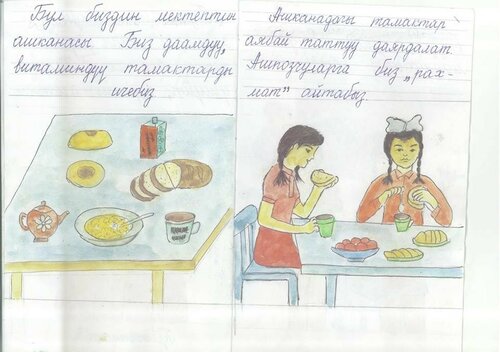 Бул биздин мектептин
ашканасы Биз даамдуу,
витаминдүү тамактарды
ичебиз
Ашканадагы тамактар
аябай таттуу даярдалат
Ашпозчуларга биз „рах-
мат" айтабыз.